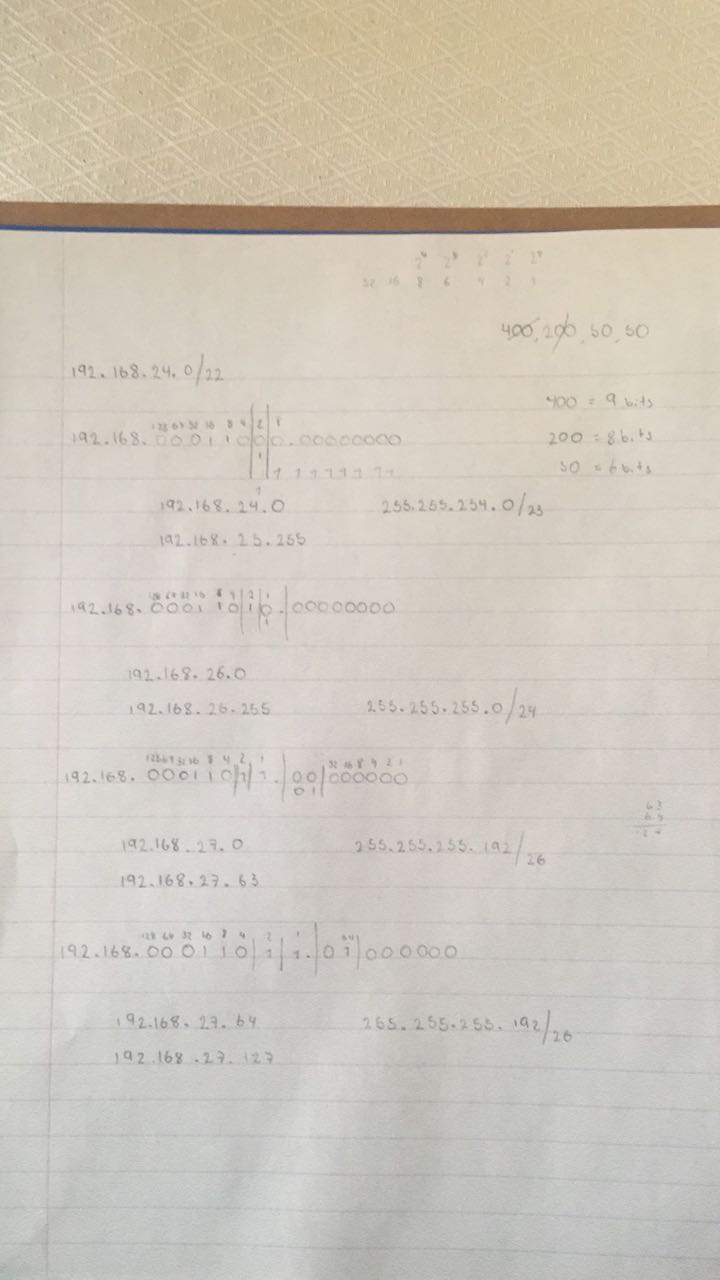 2⁴ 2³ 2² 2¹ 2⁰
32 16 8 6 4 2 1
400, 200, 50, 50
192.168.24.0/22
400 = 9 bits
128 64 32 16 8 4 2 1
192.168.00011000.00000000
200 = 8 bits
1 1 1 1 1 1 1 1 1
50 = 6 bits
1
192.168.24.0 255.255.254.0/23
192.168.25.255
128 64 32 16 8 4 2 1
192.168.00011010.00000000
1
192.168.26.0
192.168.26.255 255.255.255.0/24
128 64 32 16 8 4 2 1 32 16 8 4 2 1
192.168.00011011.00000000
01
63
192.168.27.0 255.255.255.192/26
192.168.27.63
128 64 32 16 8 4 2 1 64
192.168.00011011.01000000
192.168.27.64 265.255.255.192/26
192.168.27.127